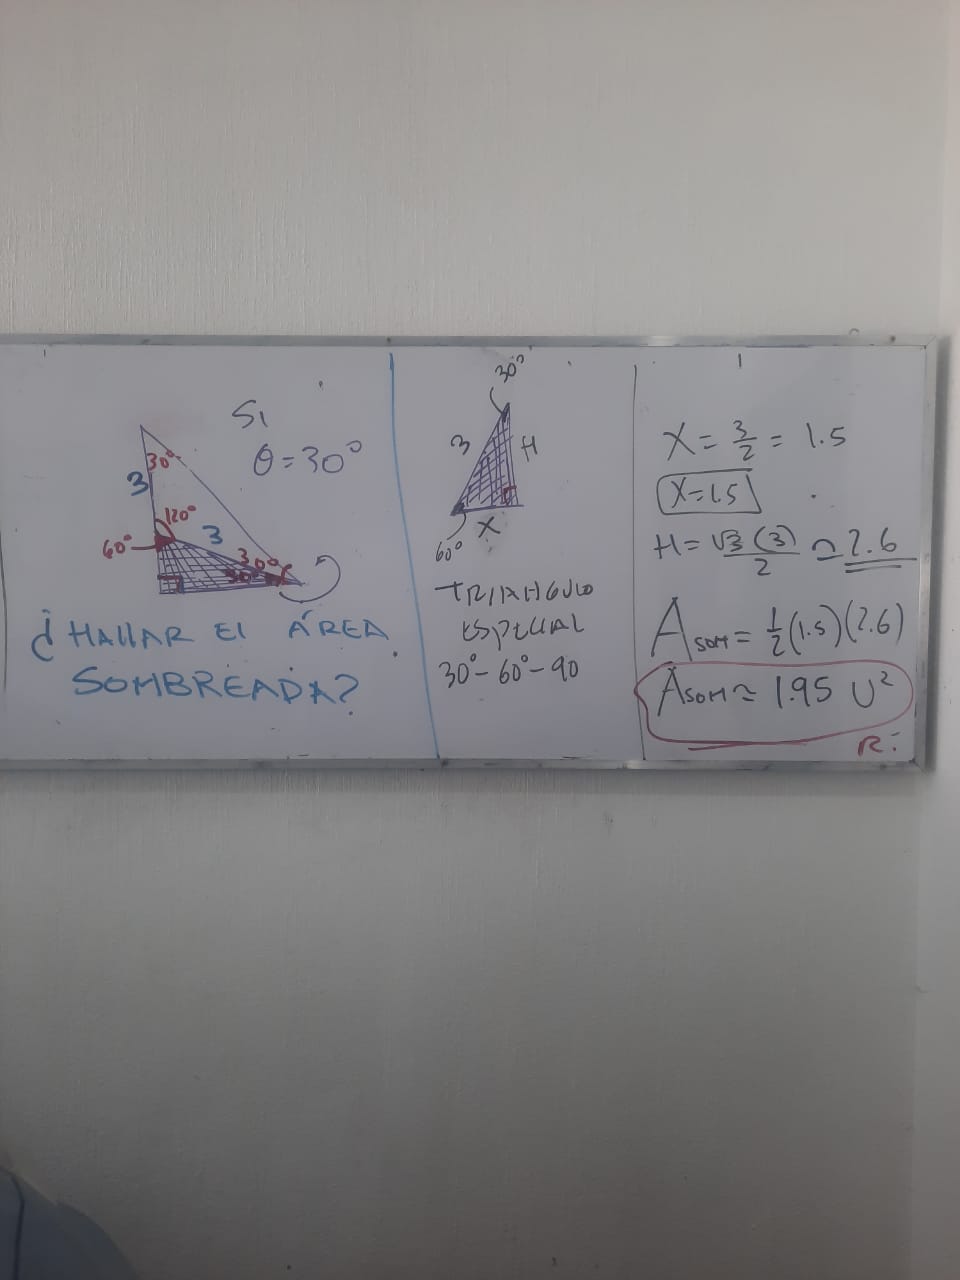 Si
θ = 30°
30°
3
120°
60°
3
30°
30°
¿HALLAR EL ÁREA
SOMBREADA?
30°
3
H
60°
X
TRIANGULO
ESPECIAL
30° - 60° - 90
X = 3/2 = 1.5
X = 1.5
H = √3 (3)/2 ≃ 2.6
A SOM = 1/2 (1.5)(2.6)
A SOM ≃ 1.95 U²
R: